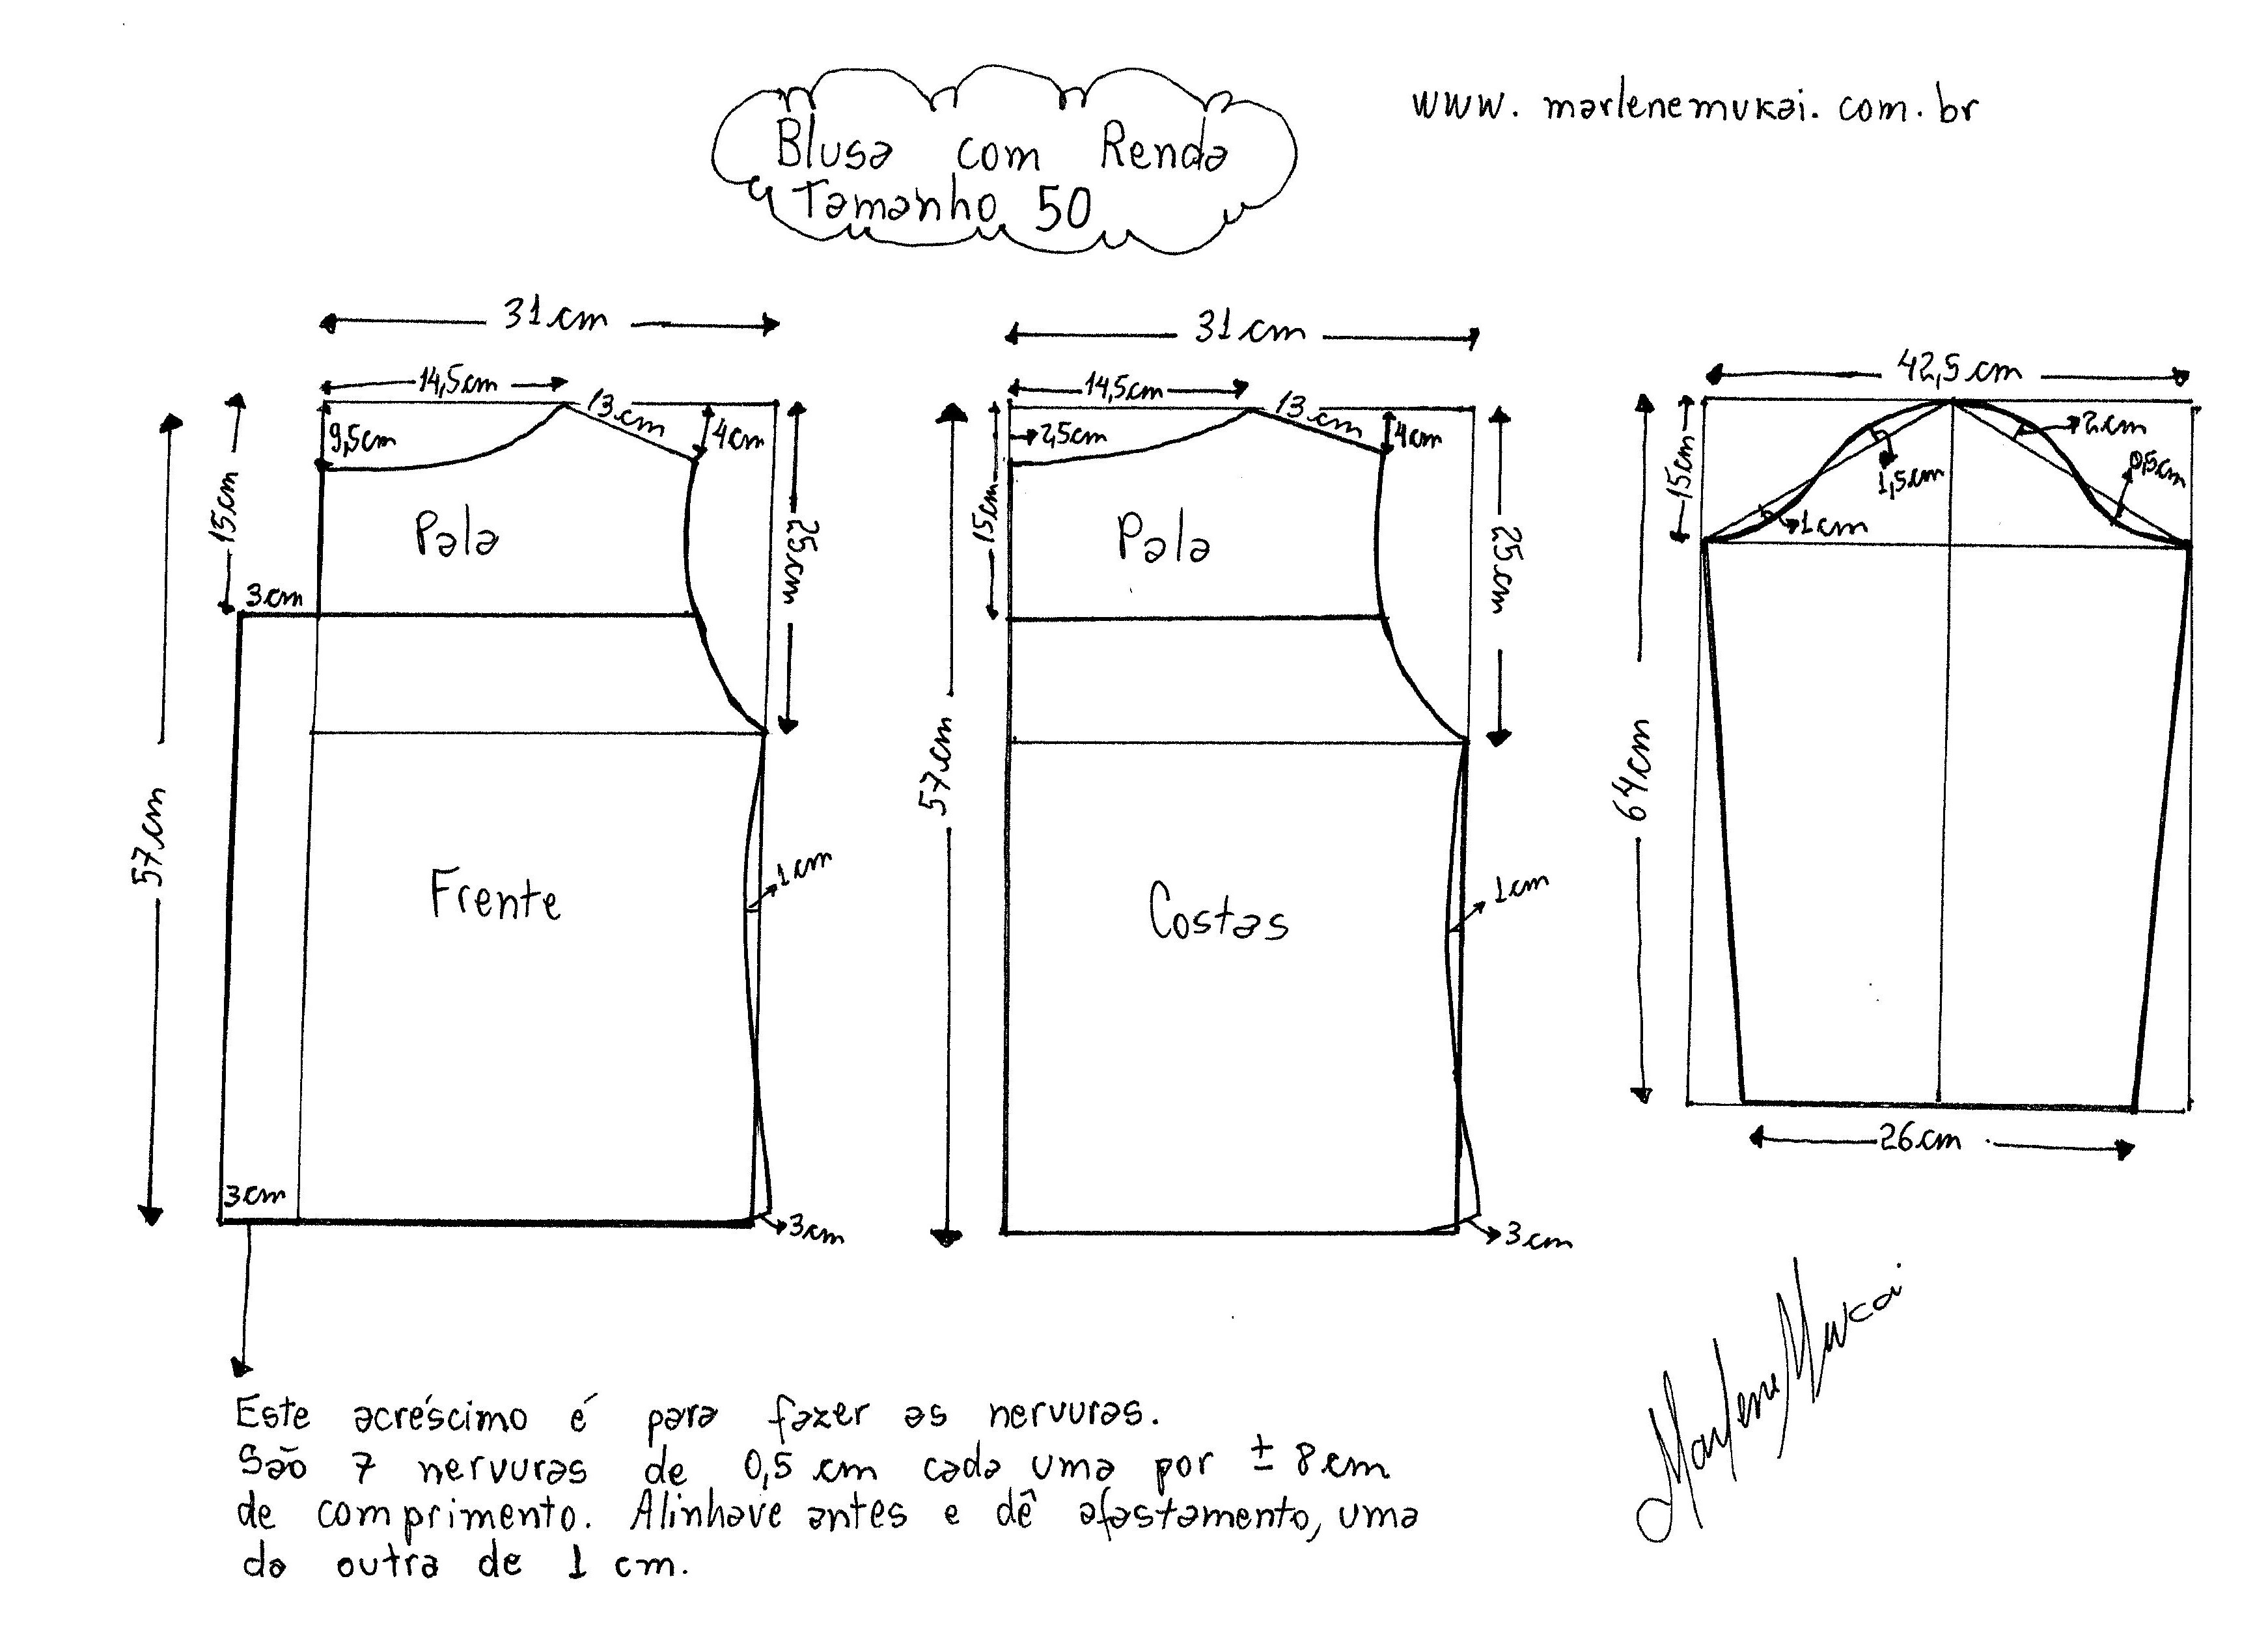 Blusa com Renda
Tamanho 50
www.marlenemukai.com.br
31 cm
14,5cm
13 cm
9,5cm
4cm
15cm
25cm
Pala
3cm
57cm
Frente
1cm
3cm
3cm
31 cm
14,5cm
13 cm
2,5cm
4cm
15cm
25cm
Pala
57cm
Costas
1cm
3cm
42,5cm
15cm
2cm
1,5cm
0,5cm
1cm
64cm
26cm
Este acréscimo é para fazer as nervuras.
São 7 nervuras de 0,5 cm cada uma por ± 8cm
de comprimento. Alinhave antes e dê afastamento, uma
da outra de 1 cm.
Marlene Mukai